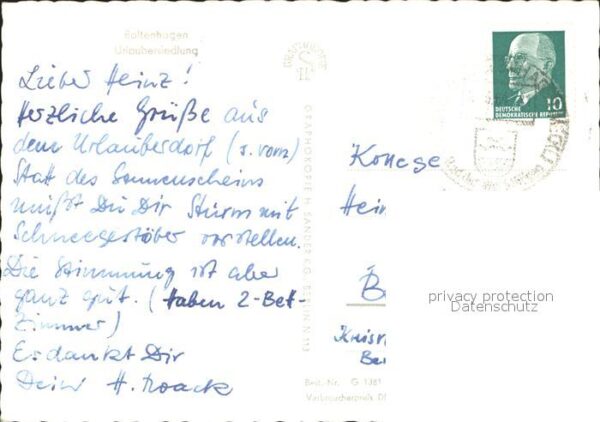 Boltenhagen
Urlaubersiedlung
Lieber Heinz!
Herzliche Grüße aus
dem Urlauberdorf (s. vorn)
Statt des Sonnenscheins
mußt Du Dir Sturm mit
Schneegestöber vorstellen.
Die Stimmung ist aber
ganz gut. (haben 2-Bet-
Zimmer)
Es dankt Dir
Deine H. Noack
GRAPHOKOPIE H. SANDER K.G. BERLIN N 113
Best.-Nr. G 1381
Verbraucherpreis
10
DEUTSCHE
DEMOKRATISCHE REPUBLIK
Konege
Hein
B
Kreisr
Be
privacy protection
Datenschutz